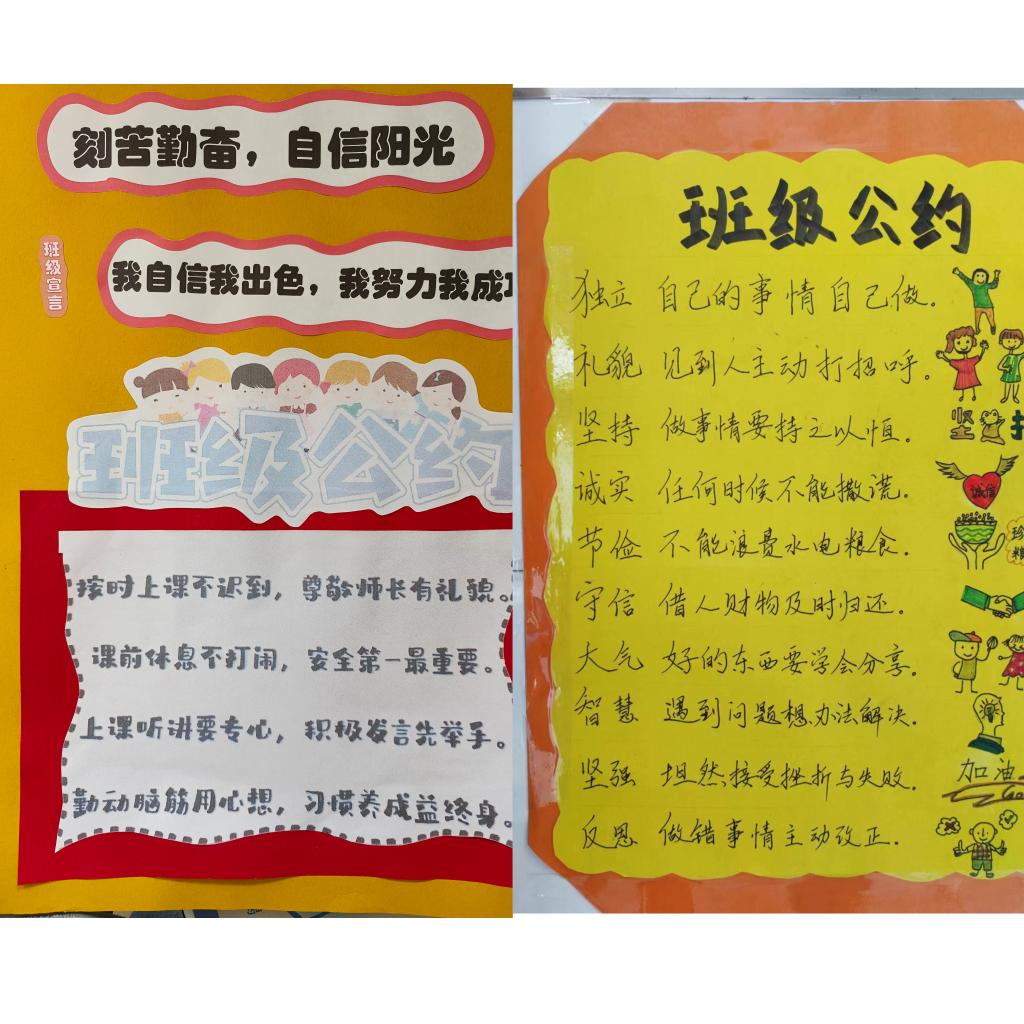 刻苦勤奋，自信阳光
班级宣言
我自信我出色，我努力我成
班级公约
按时上课不迟到，尊敬师长有礼貌。
课前休息不打闹，安全第一最重要。
上课听讲要专心，积极发言先举手。
勤动脑筋用心想，习惯养成益终身。
班级公约
独立 自己的事情自己做.
礼貌 见到人主动打招呼。
坚持 做事情要持之以恒.
坚
诚实 任何时候不能撒谎.
诚信
节俭 不能浪费水电粮食.
珍
粮
守信 借人财物及时归还.
大气 好的东西要学会分享.
智慧 遇到问题想办法解决.
坚强 坦然接受挫折与失败.
加油
Go
反思 做错事情主动改正.